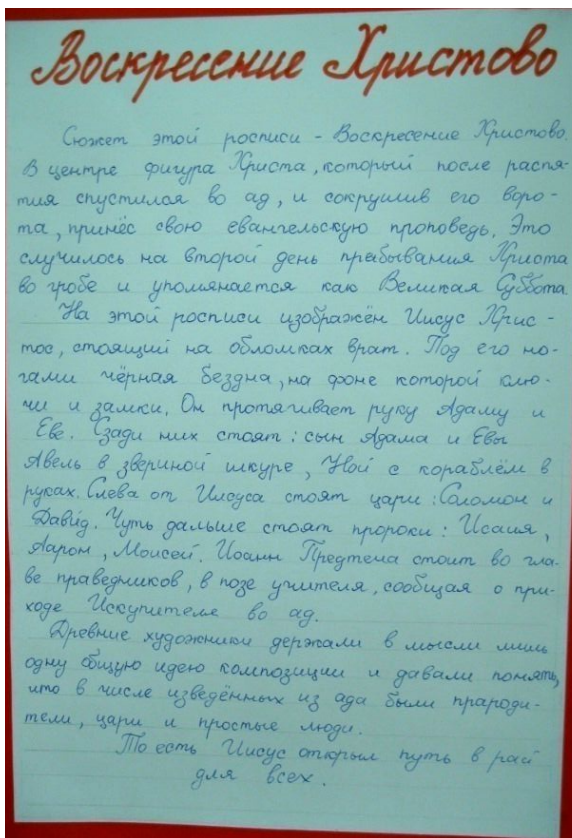 Воскресение Христово
Сюжет этой росписи - Воскресение Христово.
В центре фигура Христа, который после распя-
тия спустился во ад, и сокрушив его воро-
та, принёс свою евангельскую проповедь. Это
случилось на второй день пребывания Христа
во гробе и упоминается как Великая Суббота
На этой росписи изображён Иисус Хрис-
тос, стоящий на обломках врат. Под его но-
гами чёрная бездна, на фоне которой клю-
чи и замки. Он протягивает руку Адаму и
Еве. Сзади них стоят: сын Адама и Евы
Авель в звериной шкуре, Ной с кораблём в
руках. Слева от Иисуса стоят цари: Соломон и
Давид. Чуть дальше стоят пророки: Исаия,
Аарон, Моисей. Иоанн Предтеча стоит во гла-
ве праведников, в позе учителя, сообщая о при-
ходе Искупителя во ад.
Древние художники держали в мысли лишь
одну общую идею композиции и давали понять,
что в числе изведённых из ада были прароди-
тели, цари и простые люди.
То есть Иисус открыл путь в рай
для всех.